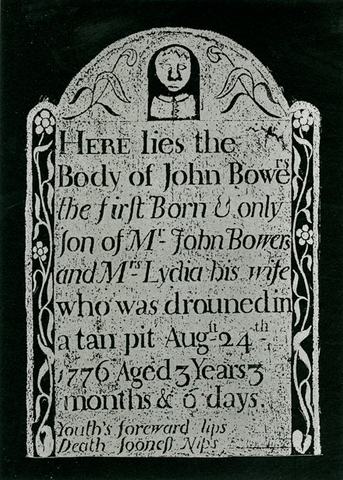 HERE lies the
Body of John Bowers
the firſt Born & only
ſon of Mr. John Bowers
and Mrs Lydia his wife
who was drouned in
a tan pit Augſt 24th
1776 Aged 3 Years 3
months & 6 days.
Youth's foreward ſlips
Death ſooneſt Nips